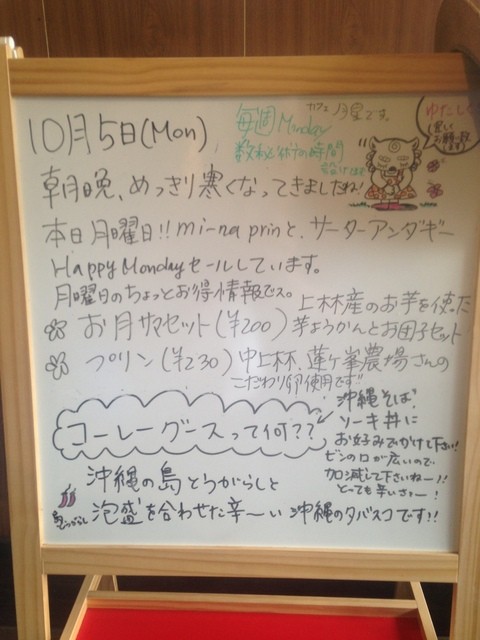 カフェ月星です。
10月5日(Mon)
毎週Monday
ゆたしく
お願い致します
朝晩、めっきり寒くなってきましたね!
本日月曜日!! mi-na prinと、サーターアンダギー
Happy Mondayセールしています。
月曜日のちょっとお得情報でス。
上林産のお芋を使った
お月サマセット(¥200) 芋ようかんとお団子セット
プリン(¥230) 中上林、蓮ヶ峯農場さんの
こだわり卵使用です!!
コーレーグースって何??
沖縄そば、
ソーキ丼に
お好みでかけて下さい!!
ビンの口が広いので、
加減して下さいねー!!
とっても辛いさぁー!
沖縄の島とうがらしと
島とうがらし
泡盛を合わせた辛〜い 沖縄のタバスコです!!